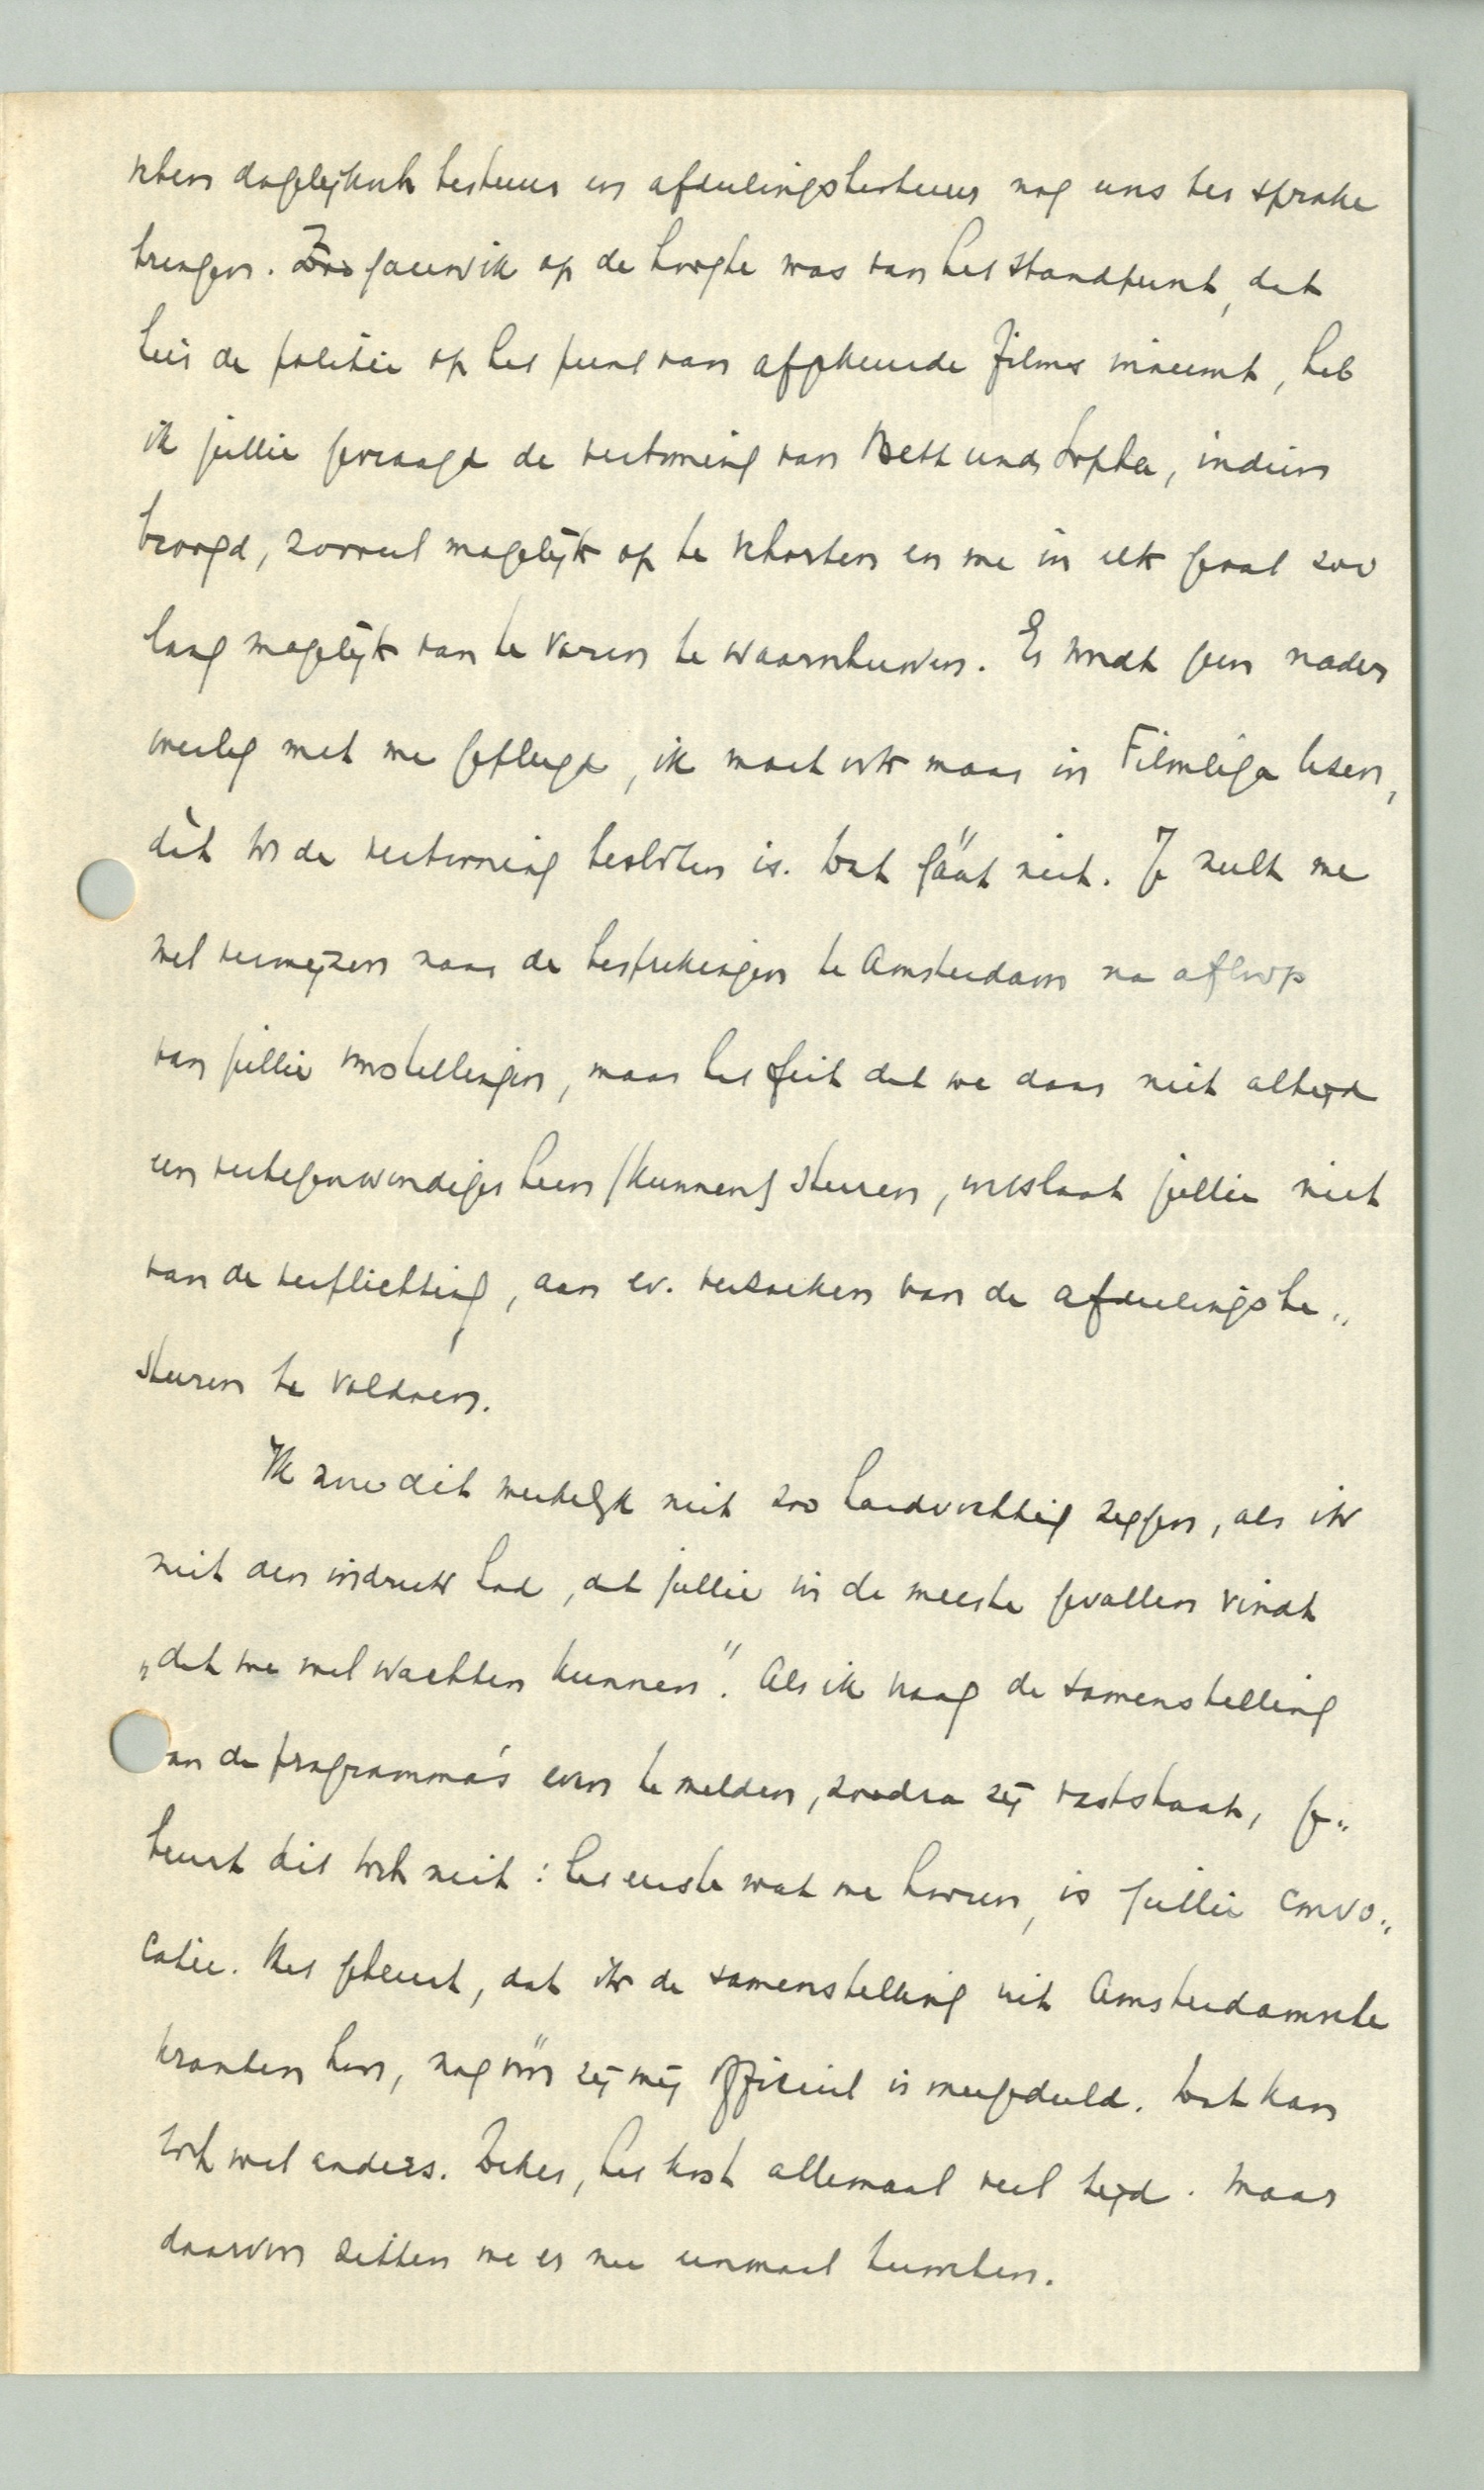 schen dagelijksch bestuur en afdeelingsbestuur nog eens ter sprake
brengen. Zoo gauw ik op de hoogte was van het standpunt, dat
hier de politie op het punt van afgekeurde films inneemt, heb
ik jullie gevraagd de vertooning van Bett und Sopha, indien
beoogd, zooveel mogelijk op te schorten en me in elk geval zoo
lang mogelijk van te voren te waarschuwen. Er wordt geen nader
overleg met me gepleegd, ik moet ook maar in Filmliga lezen,
dàt tot de vertooning besloten is. Dat gáát niet. Je zult me
wel verwijzen naar de besprekingen te Amsterdam na afloop
van jullie voorstellingen, maar het feit dat we daar niet altijd
een vertegenwoordiger heen (kunnen) sturen, ontslaat jullie niet
van de verplichting, aan ev. verzoeken van de afdeelingsbe„
sturen te voldoen.
Ik zou dit werkelijk niet zoo hardvochtig zeggen, als ik
niet den indruk had, dat jullie in de meeste gevallen vindt
„dat we wel wachten kunnen”. Als ik vraag de samenstelling
van de programma's even te melden, zoodra zij vaststaat, ge„
beurt dit toch niet: het eerste wat we hooren, is jullie convo„
catie. Het gebeurt, dat ik de samenstelling uit Amsterdamsche
kranten hoor, nog vóór zij mij officieel is meegedeeld. Dat kan
toch wel anders. Zeker, het kost allemaal veel tijd. Maar
daarvoor zitten we er nu eenmaal tusschen.